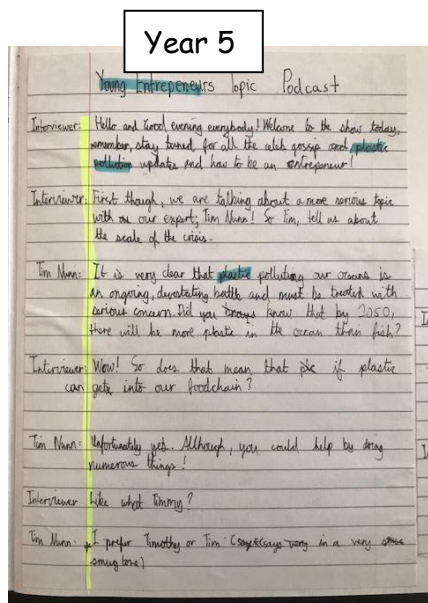 Year 5
Young Entrepeneurs Topic Podcast
Interviewer: Hello and Good evening everybody! Welcome to the show today,
remember, stay tuned for all the celeb gossip and, plastic
pollution updates and how to be an entrepeneur!
Interviewer: First though, we are talking about a more serious topic
with our expert, Tim Nunn! So Tim, tell us about
the scale of the crisis.
Tim Nunn: It is very clear that plastic polluting our oceans is
an ongoing, devastating battle and must be treated with
serious concern. Did you know that by 2050,
there will be more plastic in the ocean than fish?
Interviewer: Wow! So does that mean that if plastic
can gets into our foodchain?
Tim Nunn: Unfortunately yes. Although, you could help by doing
numerous things!
Interviewer Like what Timmy?
Tim Nunn: I prefer Timothy or Tim (says in a very
smug tone)